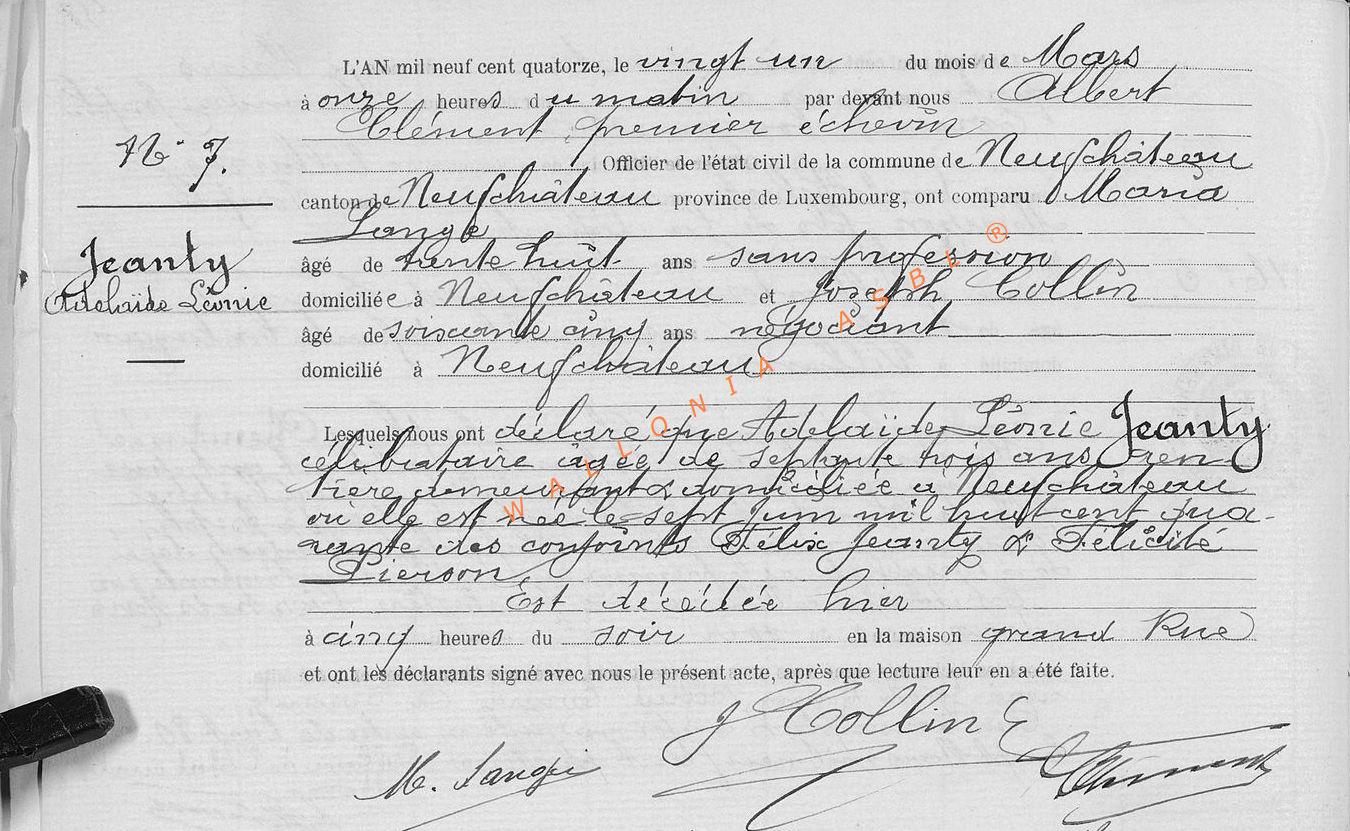 L'AN mil neuf cent quatorze, le vingt un du mois de Mars
à onze heures du matin par devant nous Albert
Clément, premier échevin
Officier de l'état civil de la commune de Neufchâteau
N° 7.
canton de Neufchâteau province de Luxembourg, ont comparu Maria
Lange
Jeanty
Adelaïde Léonie
âgé de trente huit ans sans profession
domiciliée à Neufchâteau et Joseph Collin
âgé de soixante cinq ans négociant
domicilié à Neufchâteau
Lesquels nous ont déclaré que Adelaïde Léonie Jeanty
célibataire âgée de septante trois ans, ren-
tière, demeurant & domiciliée à Neufchâteau
où elle est née le sept Juin mil huit cent qua-
rante des conjoints Félix Jeanty & Félicité
Pierson,
Est décédée hier
à cinq heures du soir en la maison grand Rue
et ont les déclarants signé avec nous le présent acte, après que lecture leur en a été faite.
J Collin
M. Lange
Clément
WALLONIA ASBL ®